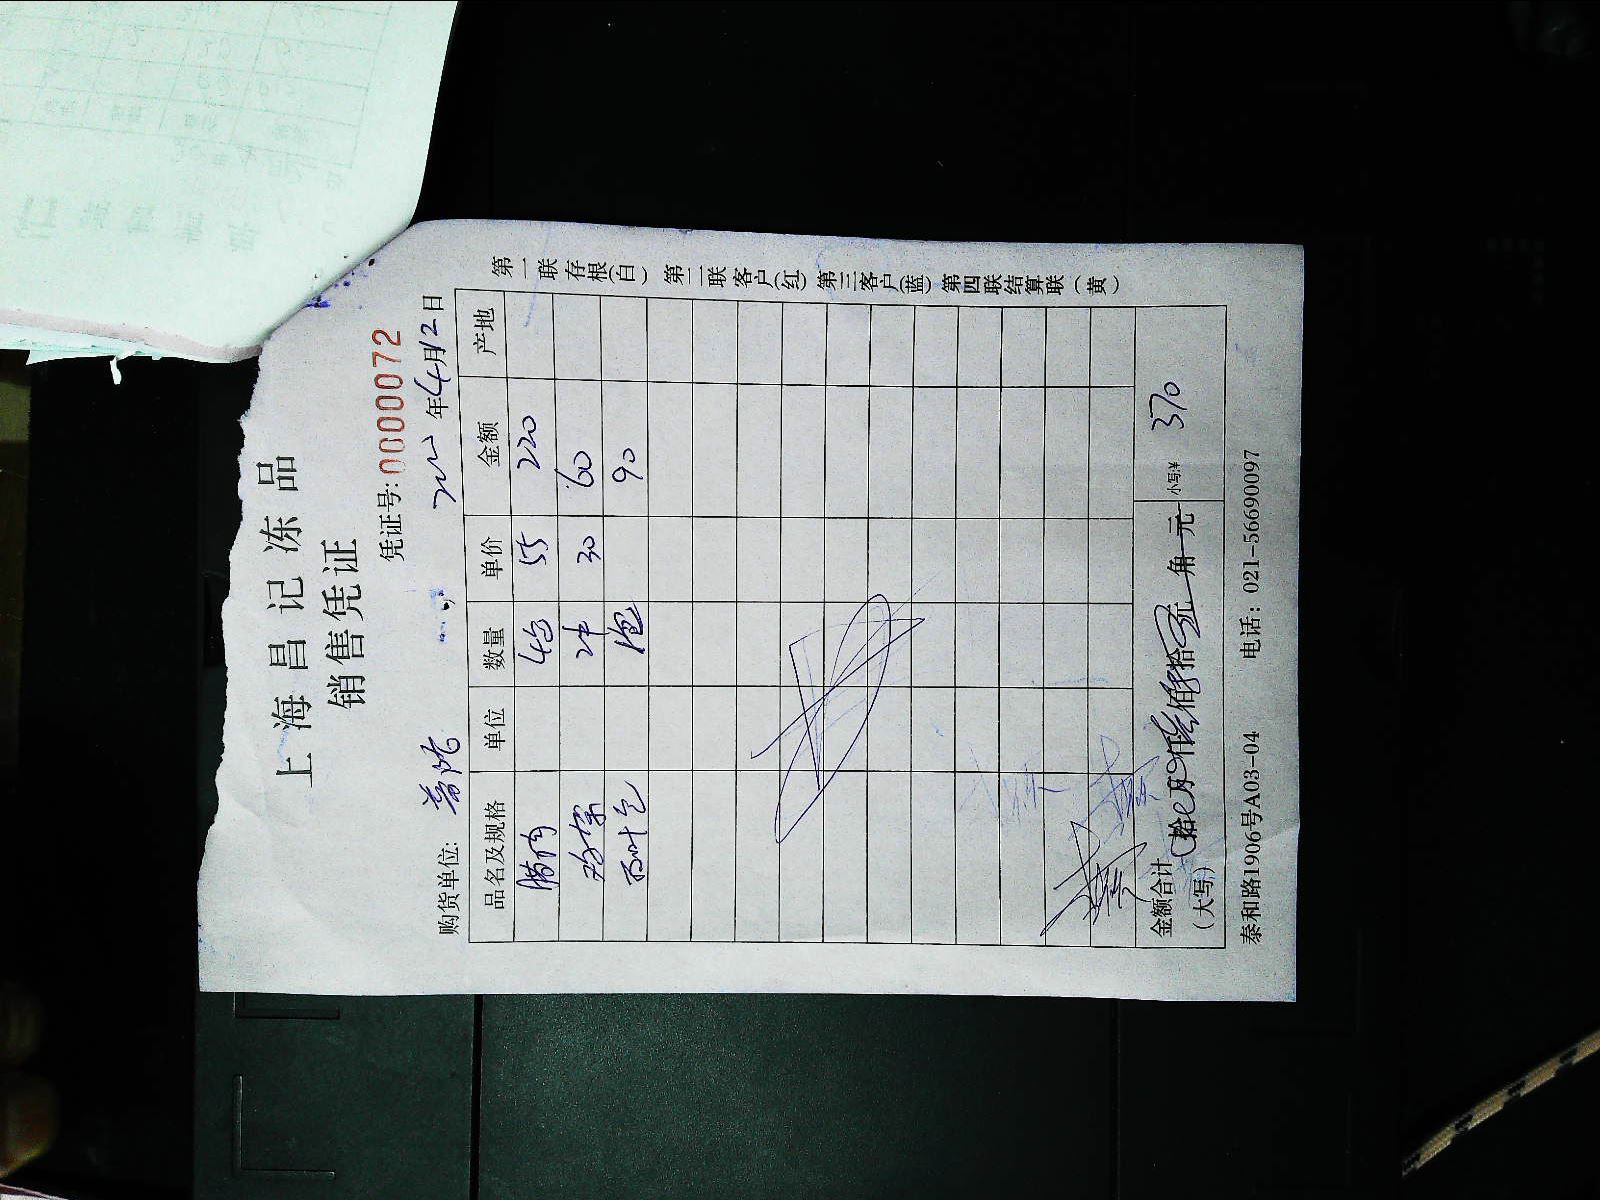 上海昌记冻品
销售凭证
凭证号:0000072
购货单位: 年4月12日
品名及规格 单位 数量 单价 金额 产地
腊肉 4包 55 220
2件 30 60
1包 90
金额合计(大写) 拾 万 仟 佰 拾 元 角 元 小写:¥ 370
泰和路1906号A03-04 电话: 021-56690097
第一联存根(白) 第二联客户(红) 第三客户(蓝) 第四联结算联(黄)